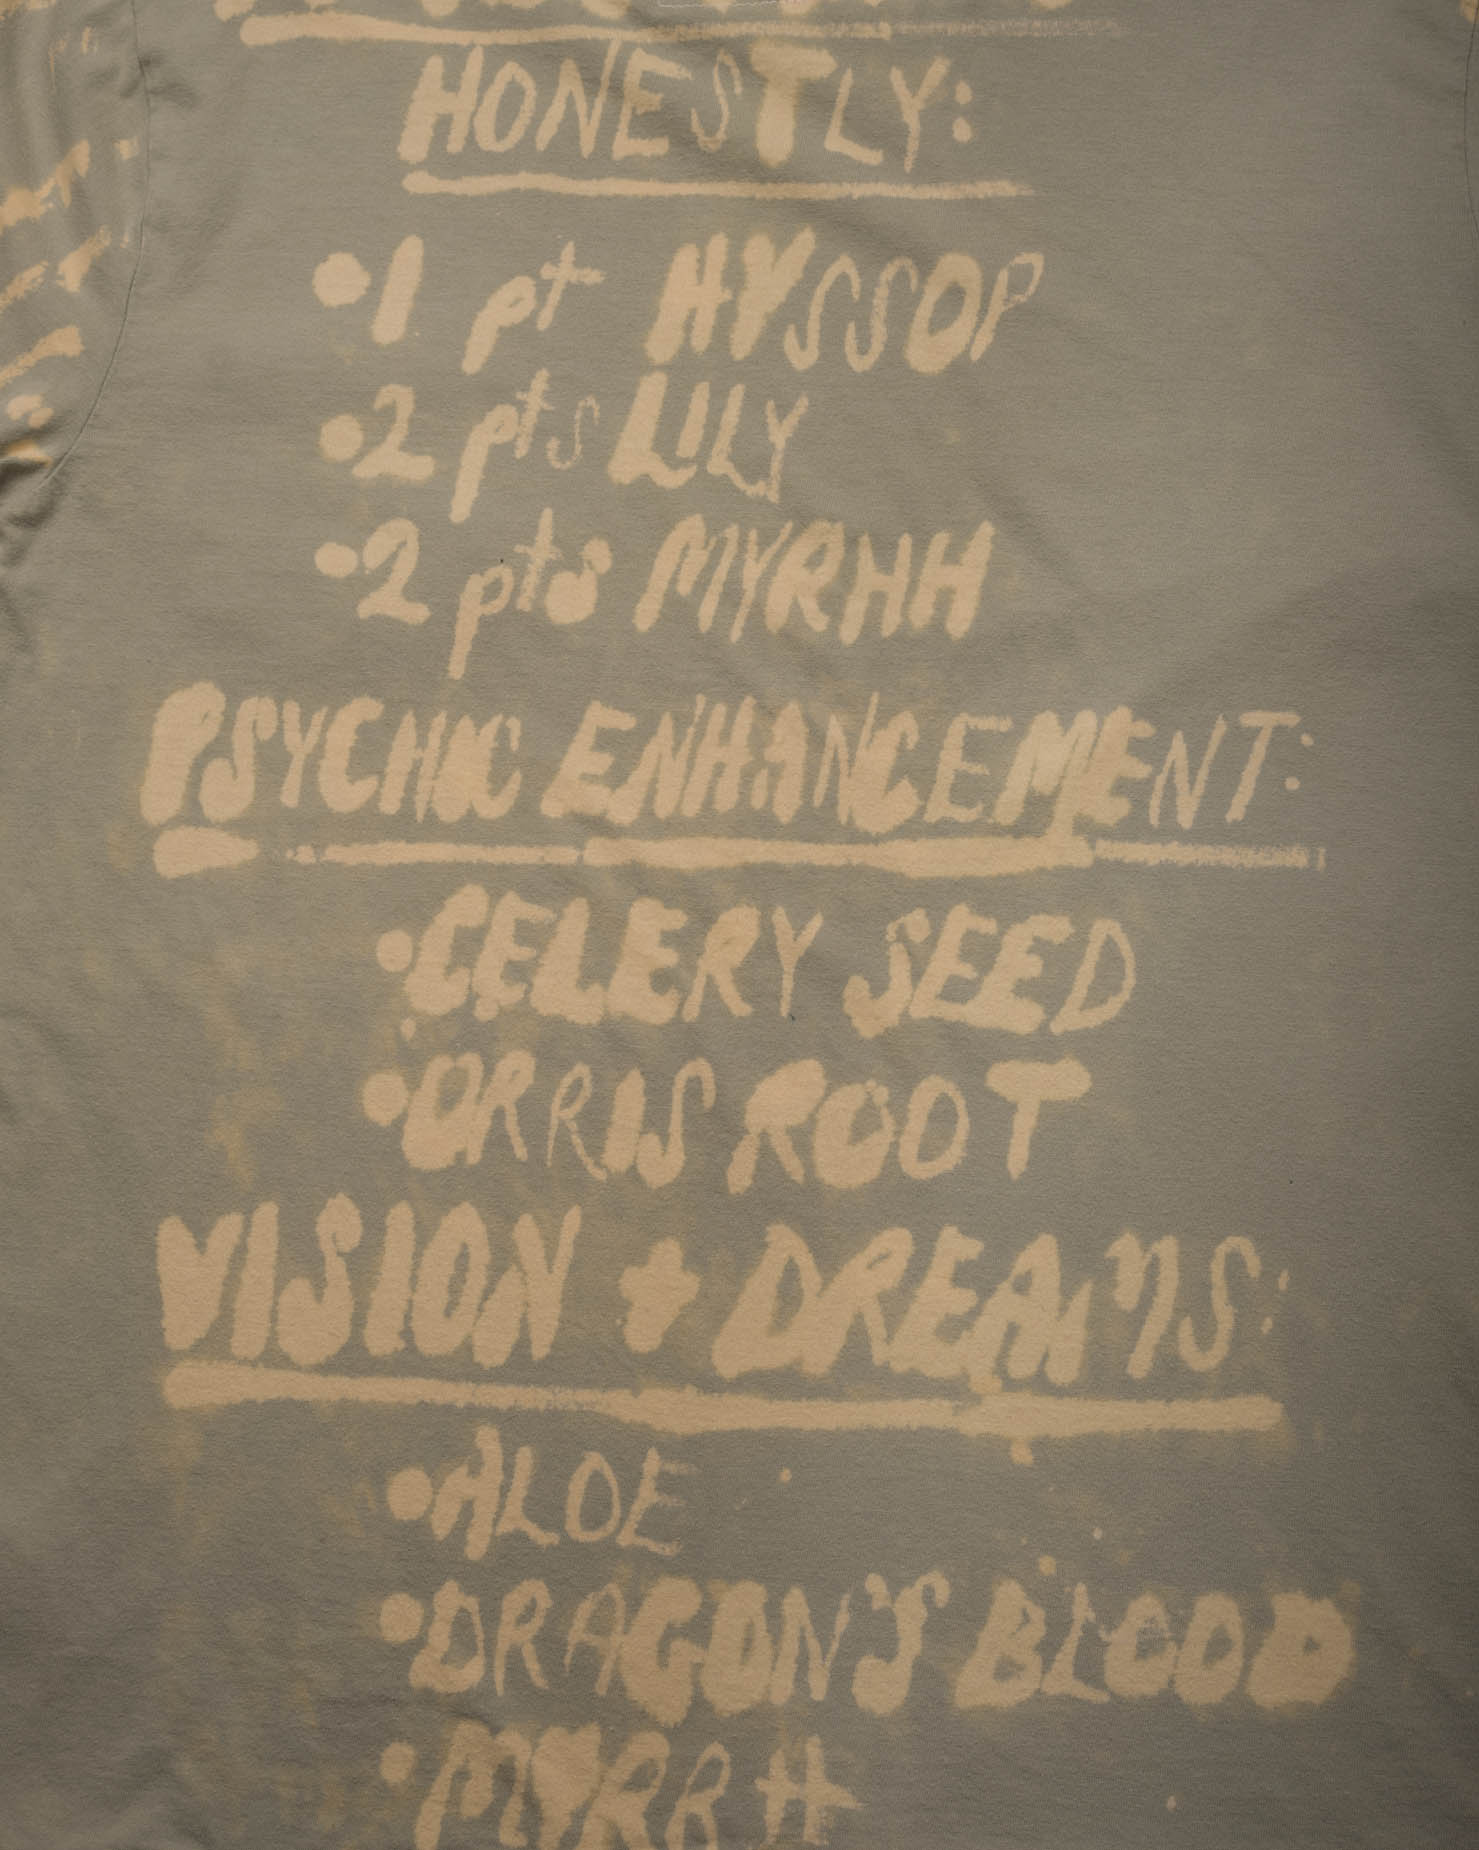 HONESTLY:
•1 pt HYSSOP
•2 pts LILY
•2 pts MYRHH
PSYCHIC ENHANCEMENT:
•CELERY SEED
•ORRIS ROOT
VISION + DREAMS:
•ALOE
•DRAGON'S BLOOD
•MYRRH